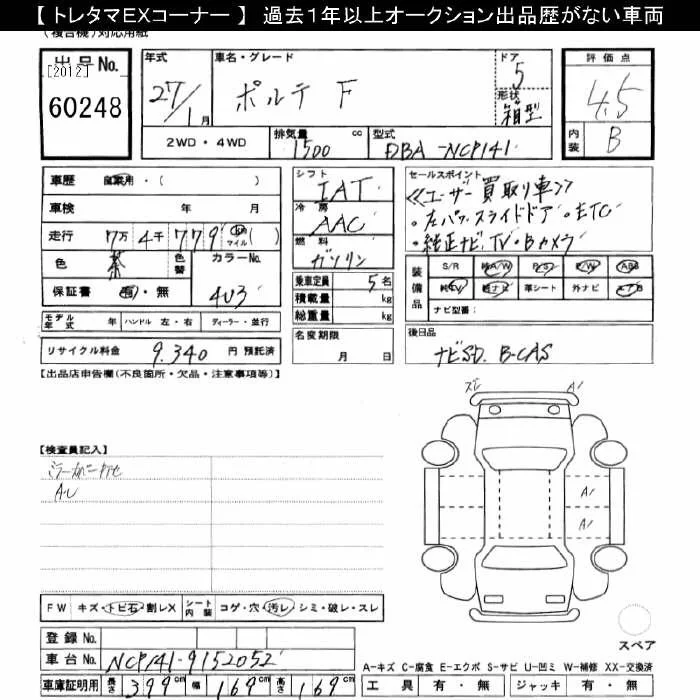 【 トレタマEXコーナー 】 過去１年以上オークション出品歴がない車両
(複合機)対応用紙
出品No.
[2012]
60248
年式
27/1月
車名・グレード
ポルテ F
ドア
5
形状
箱型
評価点
4.5
内装
B
2WD・4WD
排気量
1500 cc
型式
DBA-NCP141
車歴 自家用・( )
車検 年 月
走行 7万 4千 779 km マイル ( )
色 茶
色替
カラーNo.
4U3
保証書 有・無
モデル年式 年 ハンドル 左・右 ディーラー・並行
リサイクル料金 9.340 円 預託済
シフト
IAT
冷房
AAC
燃料
ガソリン
乗車定員 5名
積載量 kg
総重量 kg
名変期限
月 日
セールスポイント
≪ユーザー買取り車≫
・左パワースライドドア・ETC
・純正ナビ,TV・Bカメラ
装備品
S/R 純A/W P/S P/W ABS
純TV 純ナビ 革シート 外ナビ エアB
ナビ型番:
後日品
ナビSD. B-CAS
【出品店申告欄(不良箇所・欠品・注意事項等)】
【検査員記入】
AU
A1
A1
A1
FW キズ・トビ石・割レX シート内装 コゲ・穴・汚レ・シミ・破レ・スレ
登録No.
車台No. NCP141-9152052
車庫証明用 長さ 399cm 幅 169cm 高さ 169cm
スペア
A-キズ C-腐食 E-エクボ S-サビ U-凹ミ W-補修 XX-交換済
工具 有・無 ジャッキ 有・無